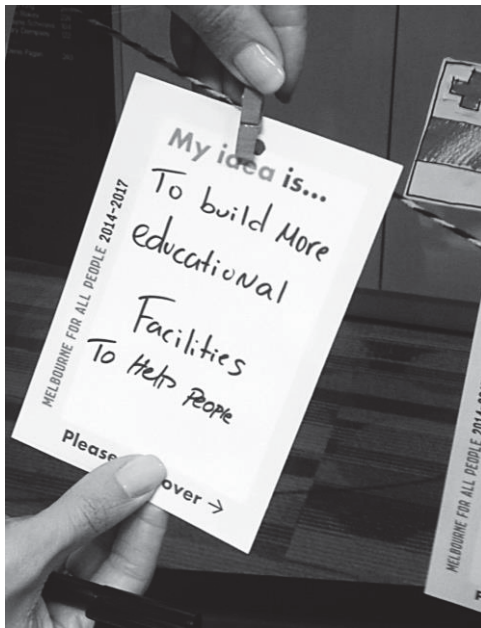 My idea is...
To build More
educational
Facilities
To Help People
MELBOURNE FOR ALL PEOPLE 2014-2017
Please over →
MELBOURNE FOR ALL PEOPLE 2014